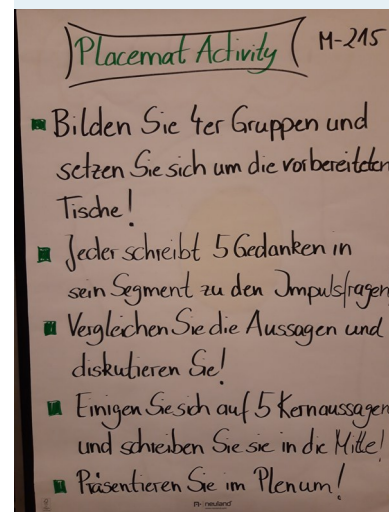 Placemat Activity
M-215
Bilden Sie 4er Gruppen und
setzen Sie sich um die vorbereiteten
Tische!
Jeder schreibt 5 Gedanken in
sein Segment zu den Impulsfragen
Vergleichen Sie die Aussagen und
diskutieren Sie!
Einigen Sie sich auf 5 Kernaussagen
und schreiben Sie sie in die Mitte!
Präsentieren Sie im Plenum!
neuland